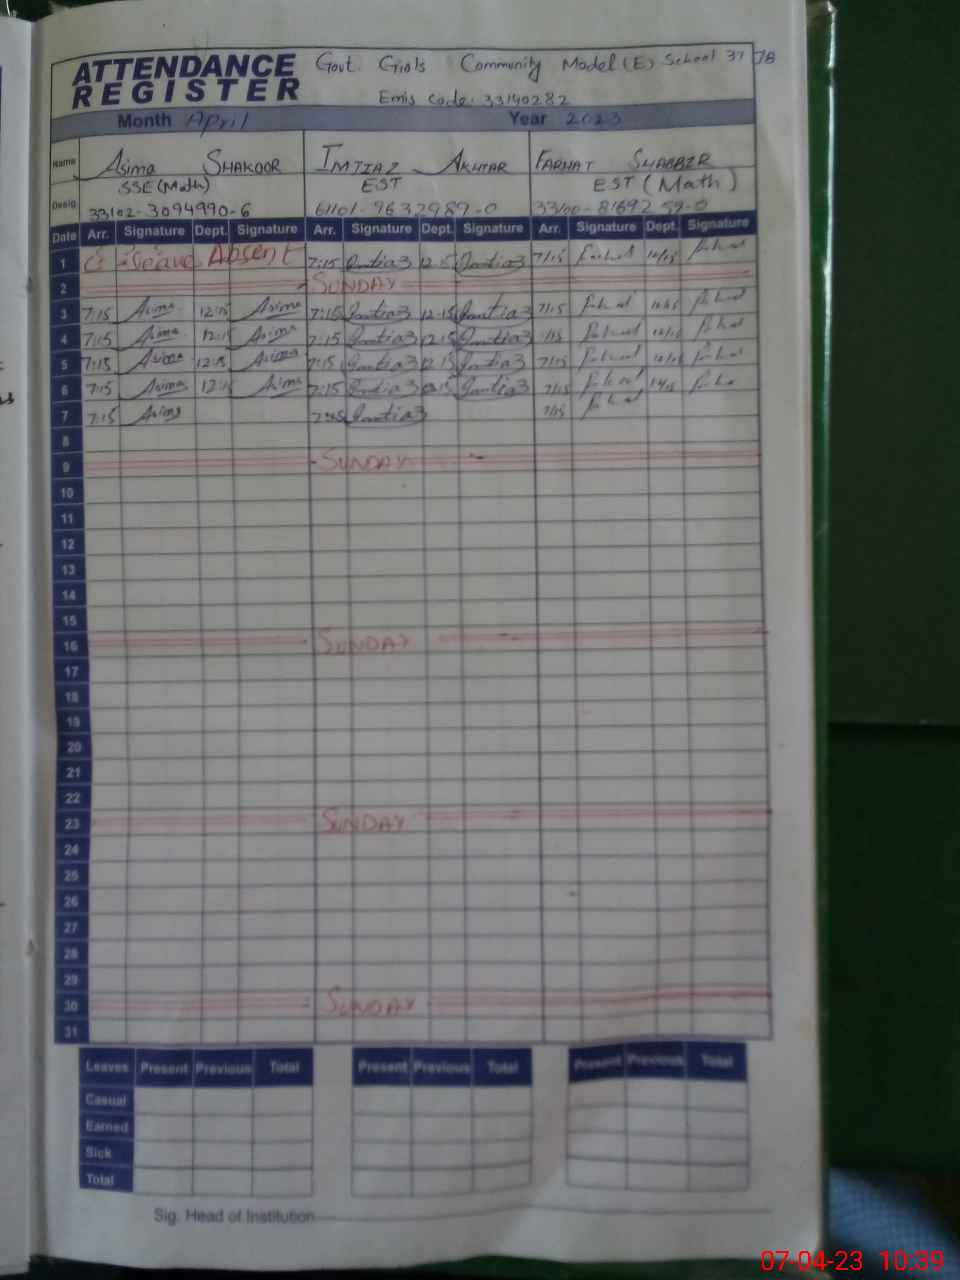 ATTENDANCE REGISTER
Govt. Girls Community Model (E) School 37 JB
Emis code: 33140282
Month April Year 2023
Name Asima SHAKOOR IMTIAZ AKHTAR FARHAT SHABBIR
SSE (Math) EST EST (Math)
Desig. 33102-3094990-6 61101-9632987-0
Date Arr. Signature Dept. Signature Arr. Signature Dept. Signature Arr. Signature Dept. Signature
1 leave Absent 7:15 Imtiaz 12:15 Imtiaz 7:15 Farhat
2 SUNDAY
3 7:15 Asima 12:15 Asima 7:15 Imtiaz 12:15 Imtiaz 7:15
4 7:15 Asima 12:15 Asima 7:15 Imtiaz 12:15 Imtiaz 7:15
5 7:15 Asima 12:15 Asima 7:15 Imtiaz 12:15 Imtiaz 7:15
6 7:15 Asima 12:15 Asima 7:15 Imtiaz Imtiaz 7:15
7 7:15 Asima Imtiaz 7:15
8
9 SUNDAY
10
11
12
13
14
15
16 SUNDAY
17
18
19
20
21
22
23 SUNDAY
24
25
26
27
28
29
30 SUNDAY
31
Leaves Present Previous Total Present Previous Total Present Previous Total
Casual
Earned
Sick
Total
Sig. Head of Institution
07-04-23 10:39